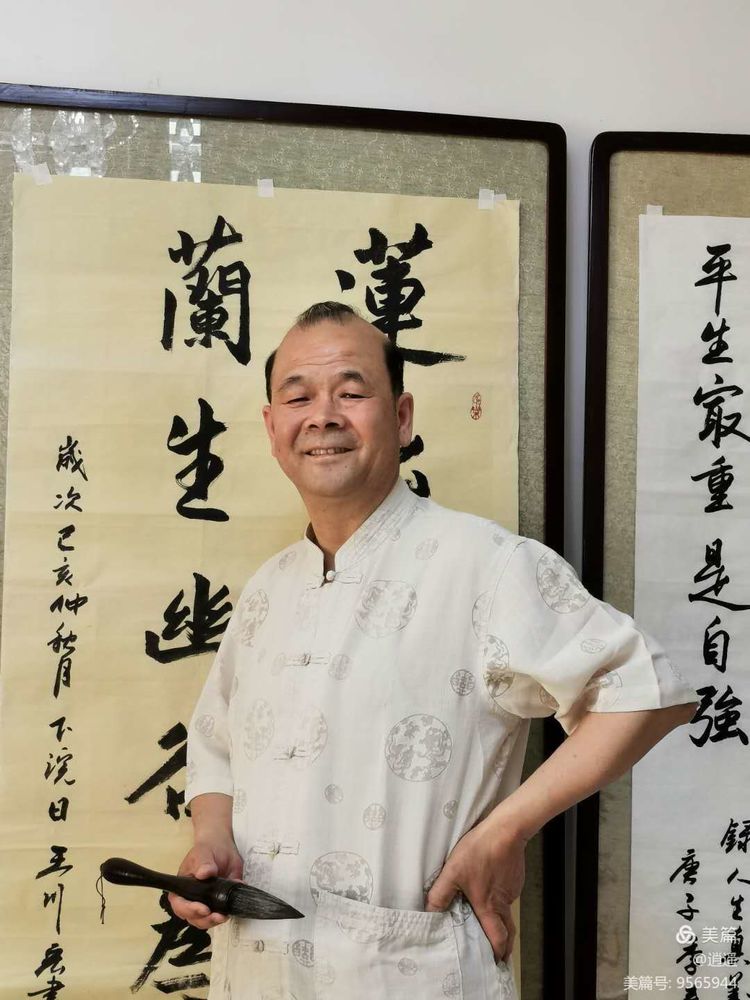 平生最重是自強
錄人生
庚子季
蓮
蘭生幽谷
歲次己亥仲秋月下浣日王川
美篇
@逍遥
美篇号: 9565944